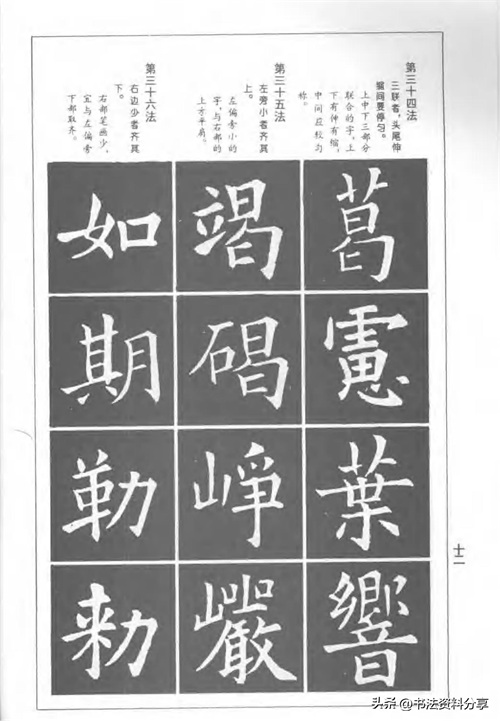 第三十四法
三联者，头尾伸
缩间要停匀。
上中下三部分
联合的字，上
下有伸有缩，
中间且较匀
称。
葛
葉
響
第三十五法
左旁小者齐其
上。
左偏旁小的
字，与右部的
上方平肩。
竭
崢
巗
第三十六法
右边少者齐其
下。
右部笔画少，
宜与左偏旁
下部取齐。
如
期
勒
勑
十一
头条 @书法资料分享